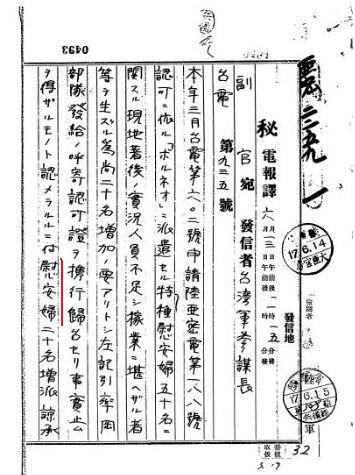 0493
秘 電報譯 六月一三日 午前後 一一時 五分 前後
發信地
副官宛 發信者 台湾軍参謀長
台電 第九三五號
本年三月台電第六〇二號申請陸亜密電第一八八號
認可ニ依ル「ボルネオ」ニ派遣セル特種慰安婦五十名ニ
関スル現地着後ノ實況人員不足シ稼業ニ堪ヘザル者
等ヲ生ズル為尚二十名増加ノ要アリトシ左記引率岡
部隊發給ノ呼寄認可證ヲ携行歸台セリ事實止ム
ヲ得ザルモノト認メラルルニ付慰安婦二十名増派諒承
17.6.14
17.6.15
32